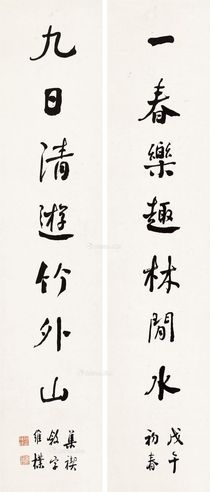 一春樂趣林間水
戊午
初春
九日清遊竹外山
集禊
敘字
維樸